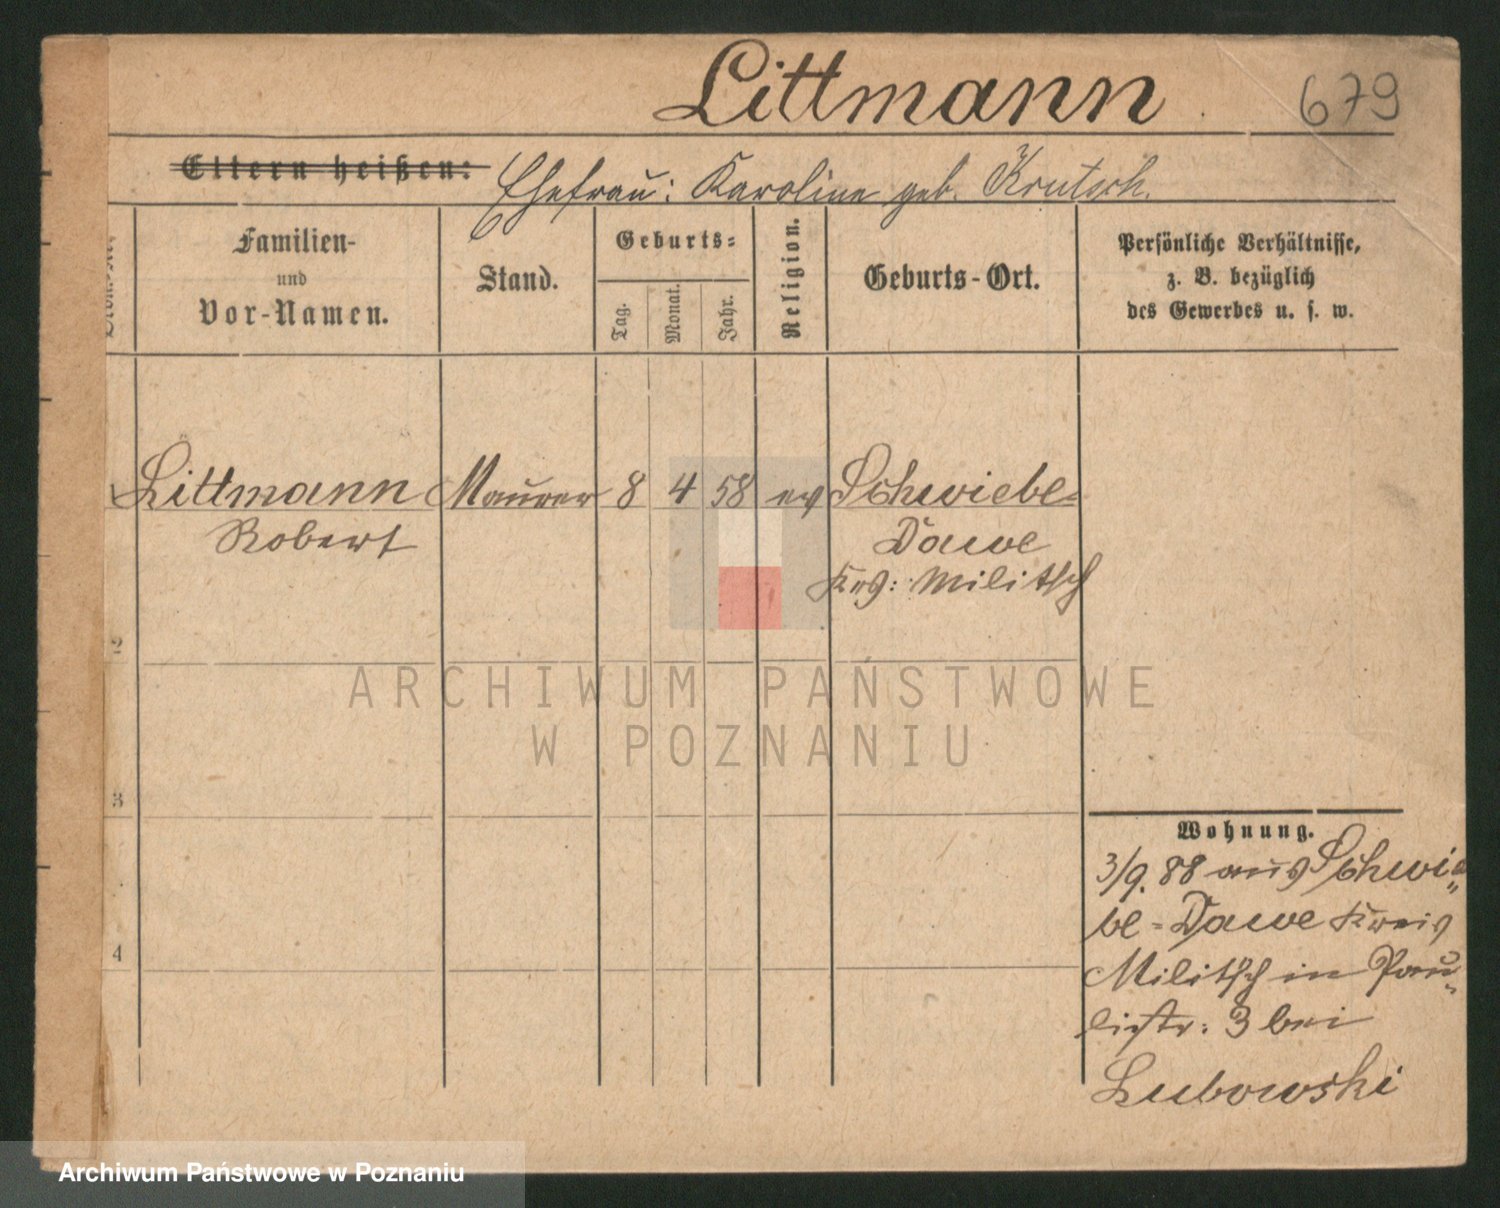 Littmann
679
Eltern heißen: Ehefrau: Karoline geb. Krutsch.
Familien-
und
Vor-Namen.
Stand.
Geburts-
Tag.
Monat.
Jahr.
Religion.
Geburts-Ort.
Persönliche Verhältnisse,
z. B. bezüglich
des Gewerbes u. s. w.
Littmann Maurer 8 4 58 ev Schwiebe-
Robert Dawe
Krs: Militsch
2
3
4
Wohnung.
3/9. 88 aus Schwie-
be-Dawe Kreis
Militsch in Pau-
listr: 3 bei
Lubowski
ARCHIWUM PAŃSTWOWE
W POZNANIU
Archiwum Państwowe w Poznaniu